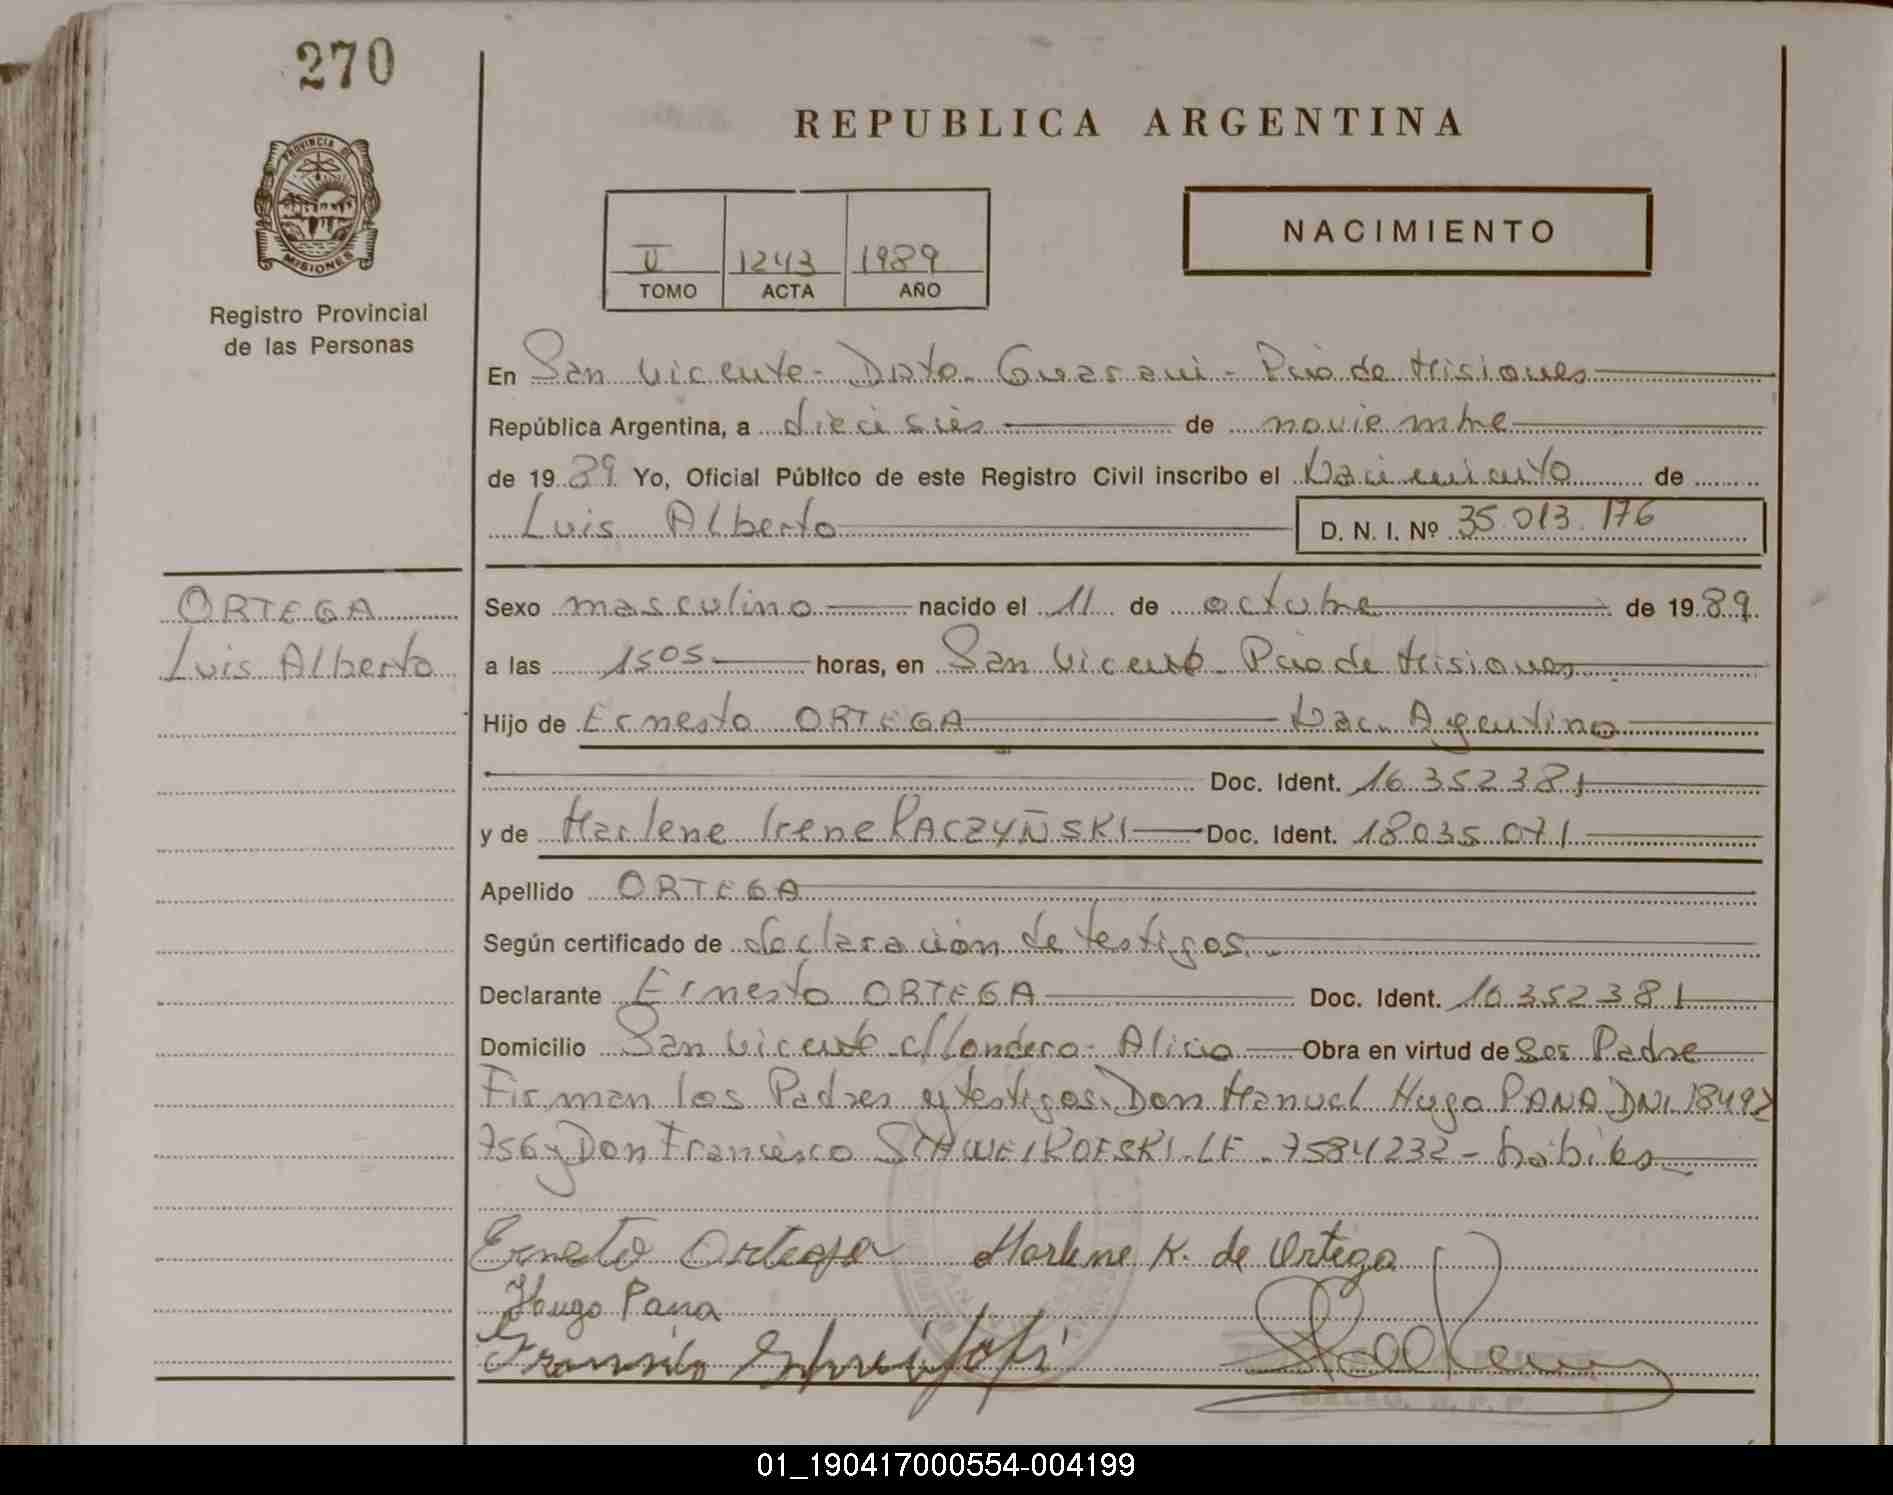 270
PROVINCIA DE
MISIONES
Registro Provincial
de las Personas
REPUBLICA ARGENTINA
II 1243 1989
TOMO ACTA AÑO
NACIMIENTO
En San Vicente - Dpto. Guarani - Pcia de Misiones
República Argentina, a dieciseis de noviembre
de 1989 Yo, Oficial Público de este Registro Civil inscribo el Nacimiento de
Luis Alberto D. N. I. Nº 35.013.176
ORTEGA
Luis Alberto
Sexo masculino nacido el 11 de octubre de 1989.
a las 1505 horas, en San Vicente Pcia de Misiones
Hijo de Ernesto ORTEGA Nac. Argentino
Doc. Ident. 16.352381
y de Marlene Irene KACZYÑSKI Doc. Ident. 18035071
Apellido ORTEGA
Según certificado de declaración de testigos.
Declarante Ernesto ORTEGA Doc. Ident. 16352381
Domicilio San Vicente Alicia Obra en virtud de Ser Padre
Firman los Padres y testigos. Don Manuel Hugo PANA DNI 18492
756 y Don Francisco LE 7584232 - hábiles
Ernesto Ortega Marlene K. de Ortega
Hugo Pana
01_190417000554-004199